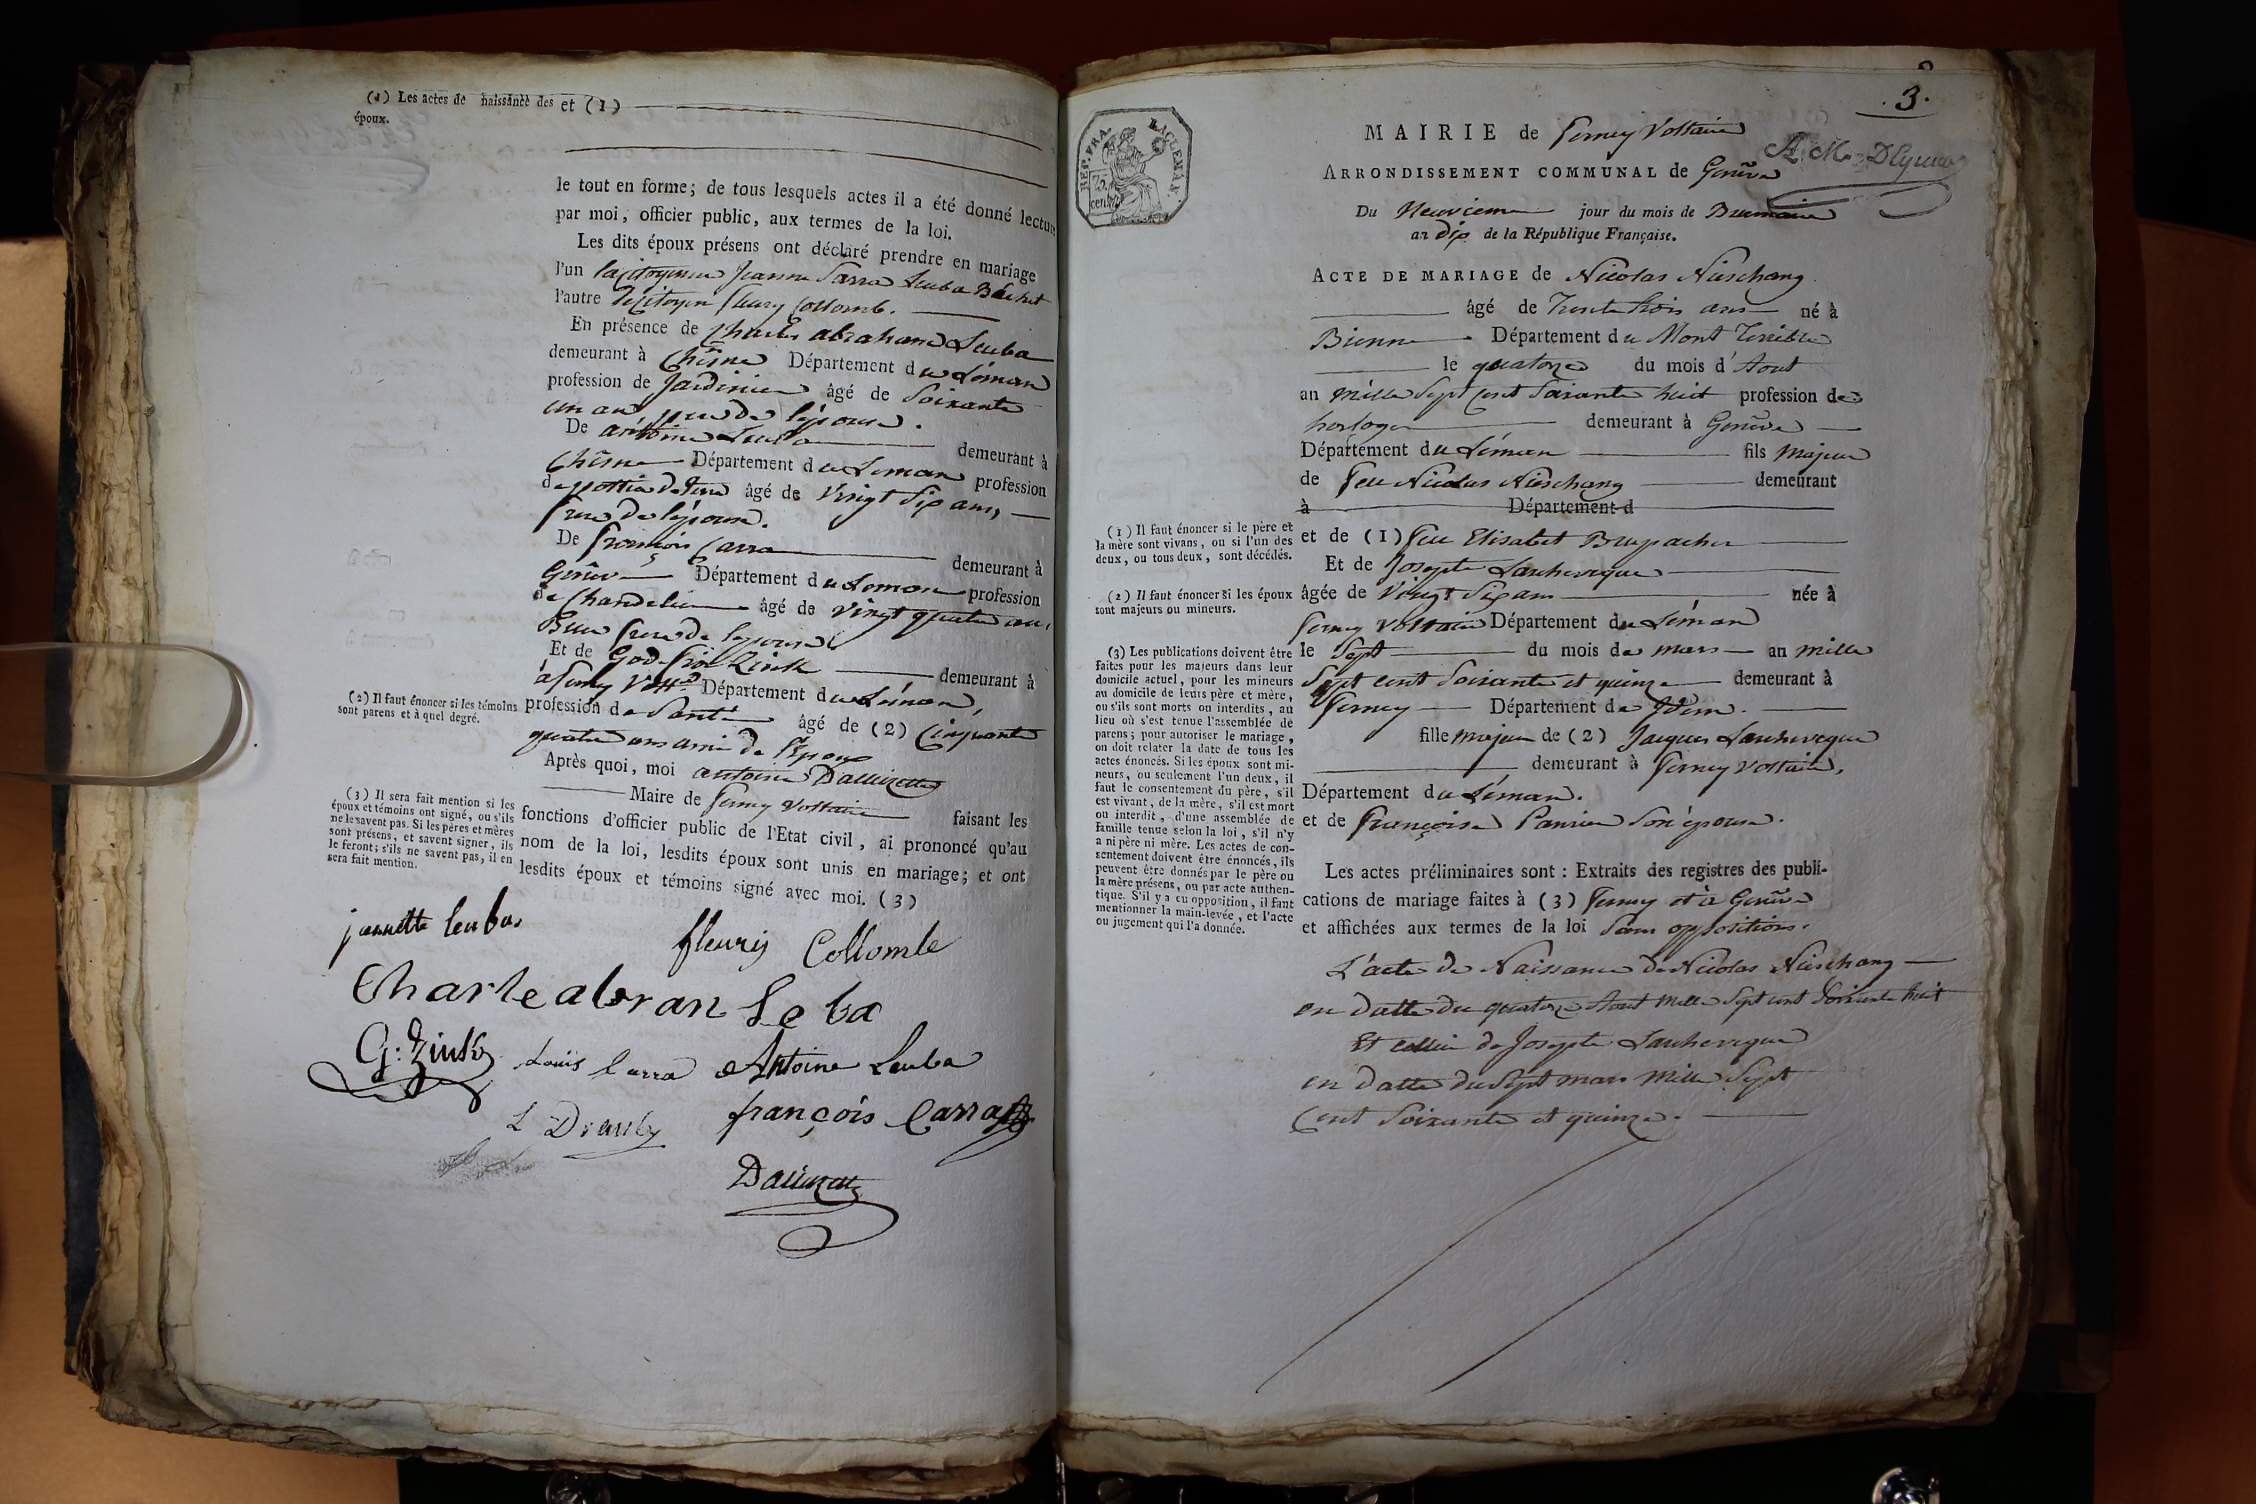 (1) Les actes de naissance des et (1)
époux.
le tout en forme; de tous lesquels actes il a été donné lecture
par moi, officier public, aux termes de la loi.
Les dits époux présens ont déclaré prendre en mariage
l'un la citoyenne Jeanne Sarra Leuba
l'autre le citoyen fleury Collomb.
En présence de Charles abraham Leuba
demeurant à Chêne Département du Léman
profession de Jardinier âgé de Soixante
un an pere de l'épouse.
De antoine Leuba demeurant à
Chêne Département du Léman profession
de pottier de terre âgé de Vingt Six ans,
frere de l'épouse.
De françois Carra demeurant à
Genêve Département du Léman profession
de Chandelier âgé de vingt quatre ans,
Beau frere de l'épouse
Et de Godefroi Zinck demeurant à
à ferney Vollt Département du Léman,
(2) Il faut énoncer si les témoins
sont parens et à quel degré.
profession de Santé âgé de (2) Cinquante
quatre ans ami de l'Epoux
Après quoi, moi antoine Dallizette
Maire de ferney Voltaire faisant les
(3) Il sera fait mention si les
époux et témoins ont signé, ou s'ils
ne le savent pas. Si les pères et mères
sont présens, et savent signer, ils
le feront; s'ils ne savent pas, il en
sera fait mention.
fonctions d'officier public de l'Etat civil, ai prononcé qu'au
nom de la loi, lesdits époux sont unis en mariage; et ont
lesdits époux et témoins signé avec moi. (3)
jeannette leuba
fleury Collomb
Charle abran Leba
G: Zink
Louis Carra Antoine Leuba
françois Carra
3.
REP. FRA.
75
cent.
MAIRIE de Ferney Voltaire
ARRONDISSEMENT COMMUNAL de Genêve
Du Neuvieme jour du mois de Brumaire
an dix de la République Française.
ACTE DE MARIAGE de Nicolas Nieschang
âgé de Trente trois ans né à
Bienne Département du Mont Terrible
le quatorze du mois d'Aout
an mille Sept Cent Soixante huit profession de
horloger demeurant à Genêve
Département du Léman fils majeur
de feu Nicolas Nieschang demeurant
à Département d
(1) Il faut énoncer si le père et
la mère sont vivans, ou si l'un des
deux, ou tous deux, sont décédés.
et de (1) feue Elisabet Brupacher
Et de Josepte Larcheveque
(2) Il faut énoncer si les époux
sont majeurs ou mineurs.
âgée de Vingt Six ans née à
ferney Voltaire Département du Léman
(3) Les publications doivent être
faites pour les majeurs dans leur
domicile actuel, pour les mineurs
au domicile de leurs père et mère,
ou s'ils sont morts ou interdits, au
lieu où s'est tenue l'assemblée de
parens; pour autoriser le mariage,
on doit relater la date de tous les
actes énoncés. Si les époux sont mi-
neurs, ou seulement l'un deux, il
faut le consentement du père, s'il
est vivant, de la mère, s'il est mort
ou interdit, d'une assemblée de
famille tenue selon la loi, s'il n'y
a ni père ni mère. Les actes de con-
sentement doivent être énoncés, ils
peuvent être donnés par le père ou
la mère présens, ou par acte authen-
tique. S'il y a eu opposition, il faut
mentionner la main-levée, et l'acte
ou jugement qui l'a donnée.
le Sept du mois de mars an mille
Sept cent Soixante et quinze demeurant à
ferney Département de Idem.
fille majeure de (2) Jacques Larcheveque
demeurant à ferney Voltaire,
Département du Léman.
et de Françoise Panrier Son épouse.
Les actes préliminaires sont : Extraits des registres des publi-
cations de mariage faites à (3) ferney et à Genêve
et affichées aux termes de la loi Sans oppositions.
L'acte de Naissance de Nicolas Nieschang
en datte du quatorze Aout Mille Sept cent Soixante huit
Et celui de Josepte Larcheveque
en datte du Sept mars Mille Sept
Cent Soixante et quinze.